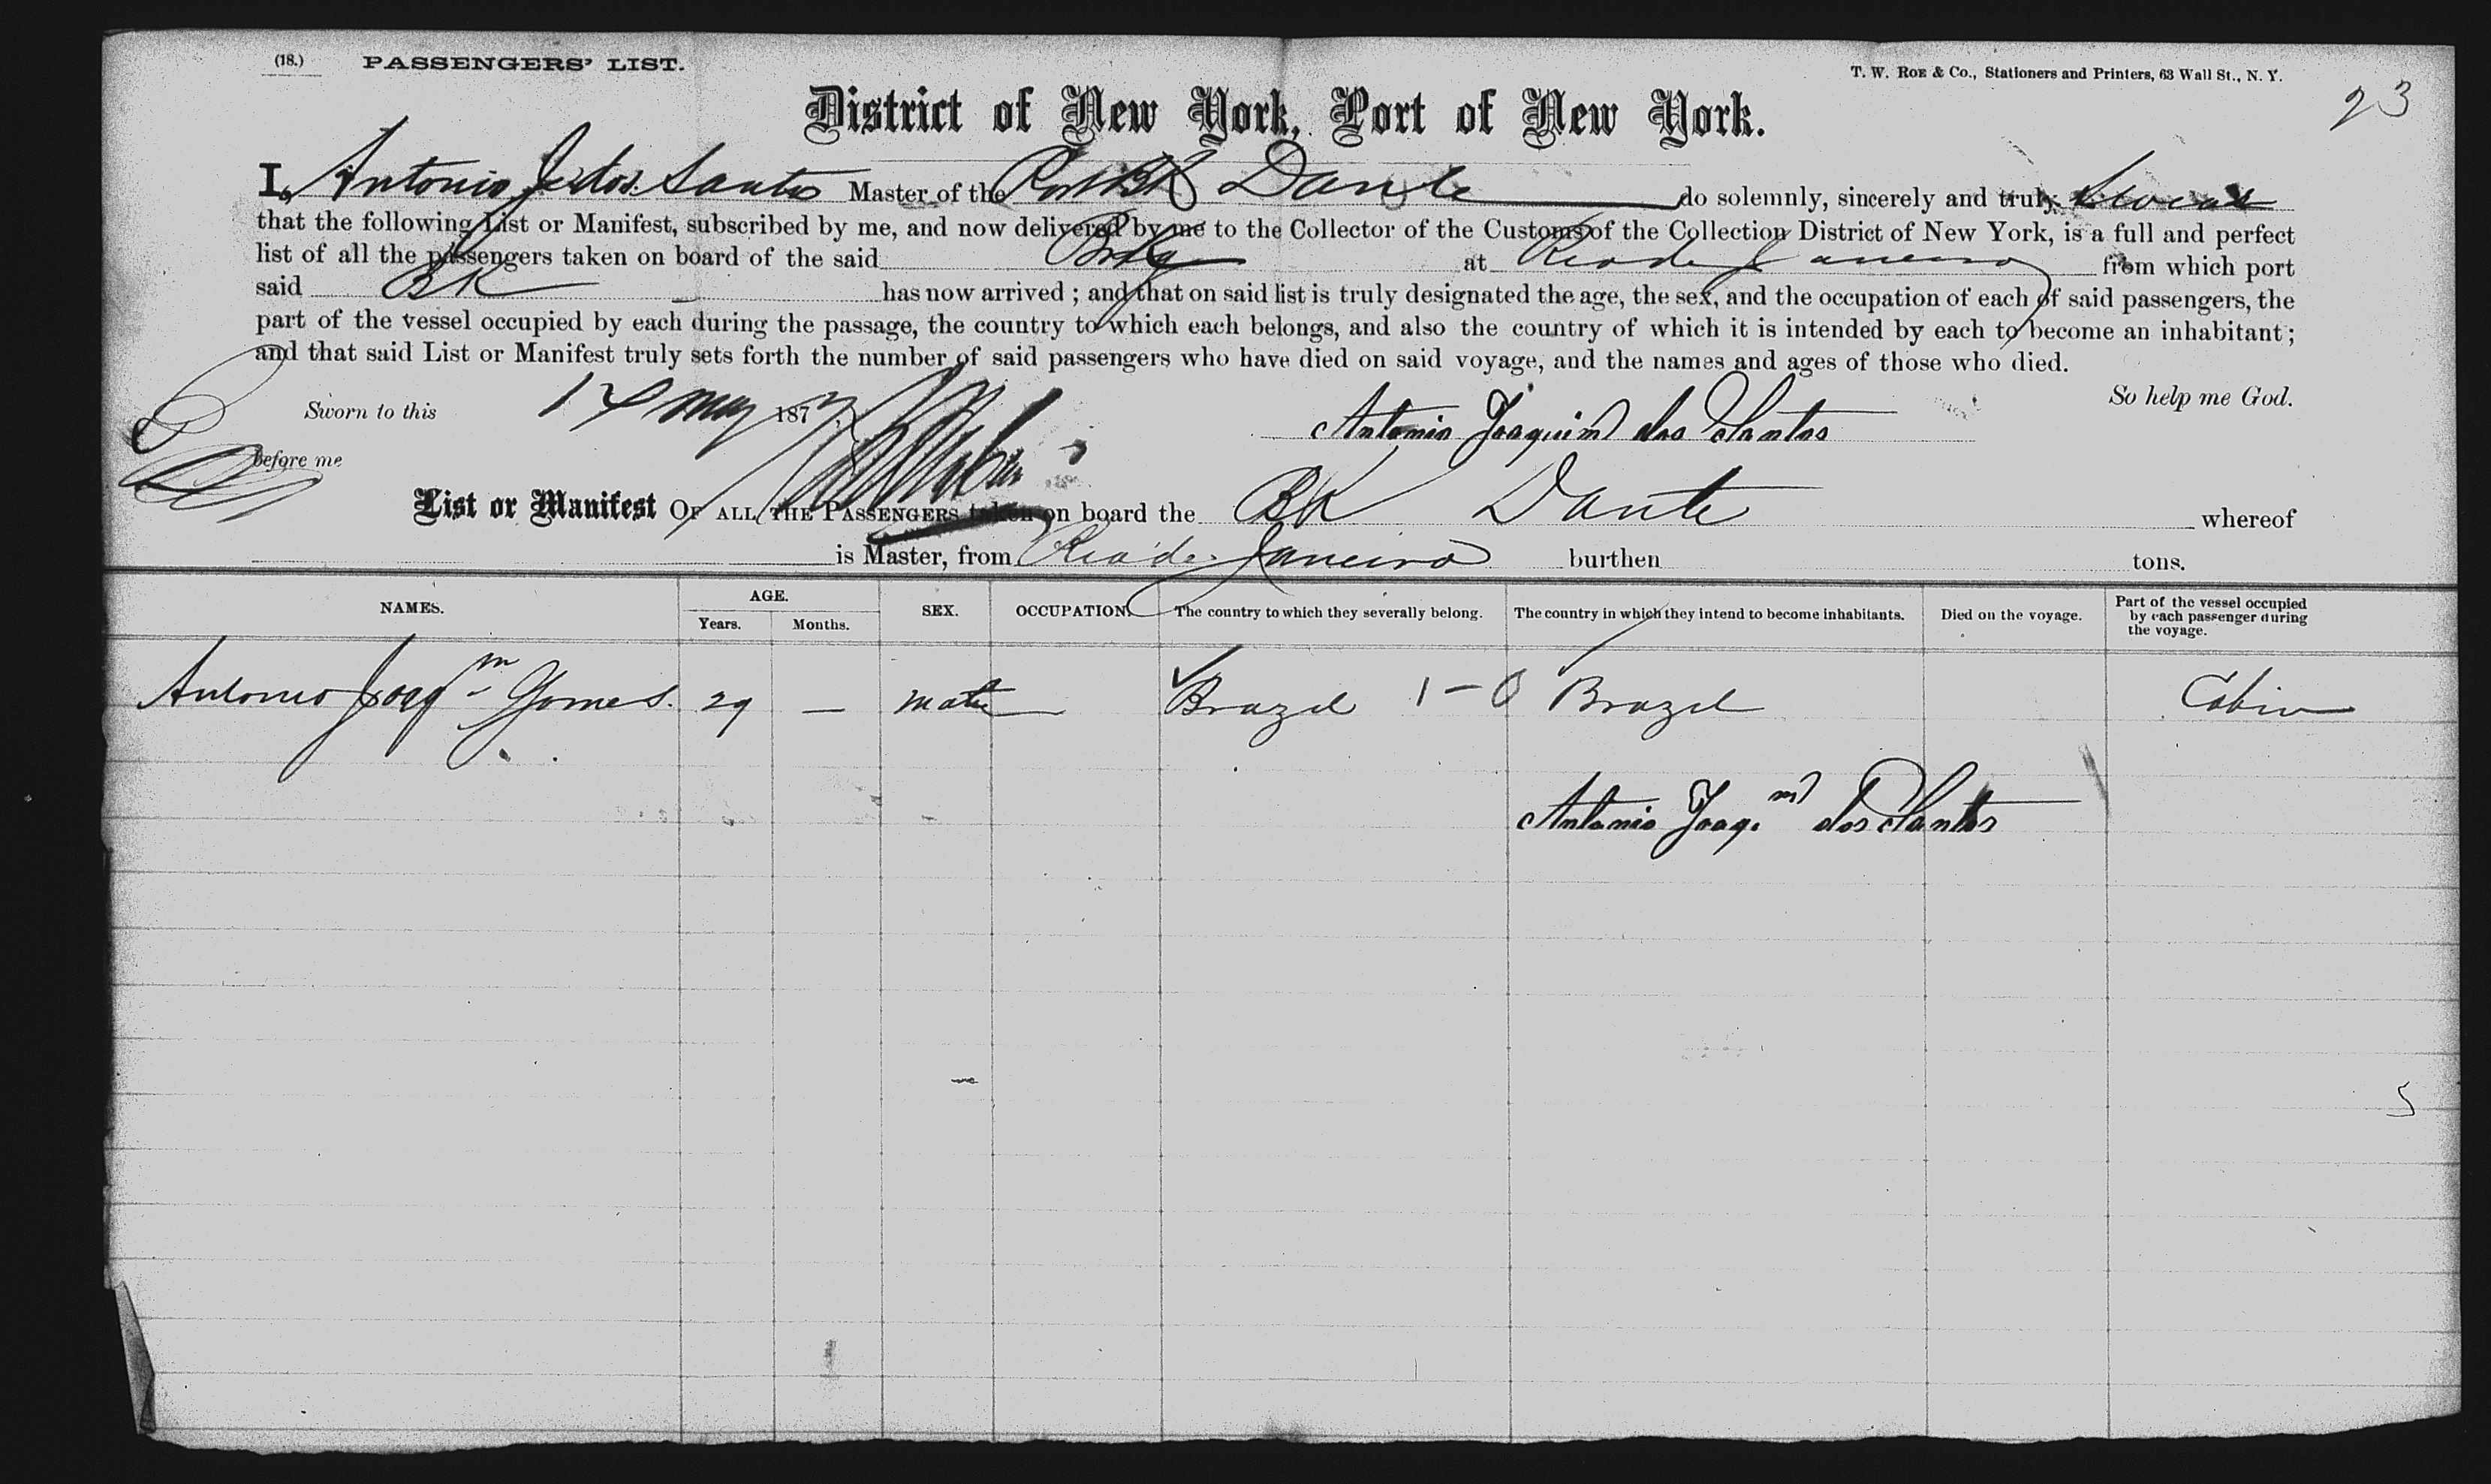 (18.) PASSENGERS' LIST.
T. W. ROE & Co., Stationers and Printers, 63 Wall St., N. Y.
23
District of New York, Port of New York.
I, Antonio J. dos Santos Master of the Port Bk Dante do solemnly, sincerely and truly Swear
that the following List or Manifest, subscribed by me, and now delivered by me to the Collector of the Customs of the Collection District of New York, is a full and perfect
list of all the passengers taken on board of the said Bark at Rio de Janeiro from which port
said BK has now arrived ; and that on said list is truly designated the age, the sex, and the occupation of each of said passengers, the
part of the vessel occupied by each during the passage, the country to which each belongs, and also the country of which it is intended by each to become an inhabitant ;
and that said List or Manifest truly sets forth the number of said passengers who have died on said voyage, and the names and ages of those who died.
So help me God.
Sworn to this 14 may 187
Antonio Joaquim dos Santos
before me
List or Manifest OF ALL THE PASSENGERS taken on board the BK Dante whereof
is Master, from Rio de Janeiro burthen tons.
NAMES. AGE. Years. Months. SEX. OCCUPATION. The country to which they severally belong. The country in which they intend to become inhabitants. Died on the voyage. Part of the vessel occupied by each passenger during the voyage.
Antonio Joaqm Gomes. 29 — male Brazil 1-0 Brazil Cabin
Antonio Joaq.m dos Santos